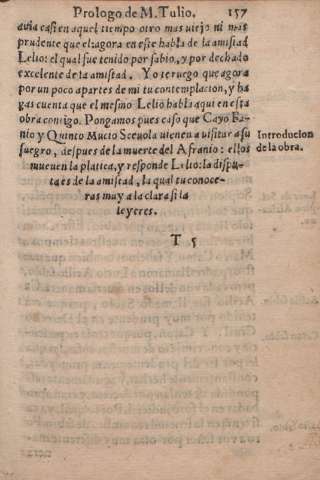 Prologo de M. Tulio. 157
auia casi en aquel tiempo otro mas viejo ni mas
prudente que el: agora en este habla de la amistad
Lelio: el qual fue tenido por sabio, y por dechado
excelente de la amistad. Yo te ruego que agora
por vn poco apartes de mi tu contemplacion, y ha
gas cuenta que el mesmo Lelio habla aqui en esta
obra contigo. Pongamos pues caso que Cayo Fa-
nio y Quinto Mucio Sceuola vienen a visitar a su
suegro, despues de la muerte del Afranio: ellos
mueuen la platica, y responde Lelio: la dispu-
ta es de la amistad, la qual tu conoce-
ras muy a la clara si la
leyeres.
Introducion
de la obra.
T 5